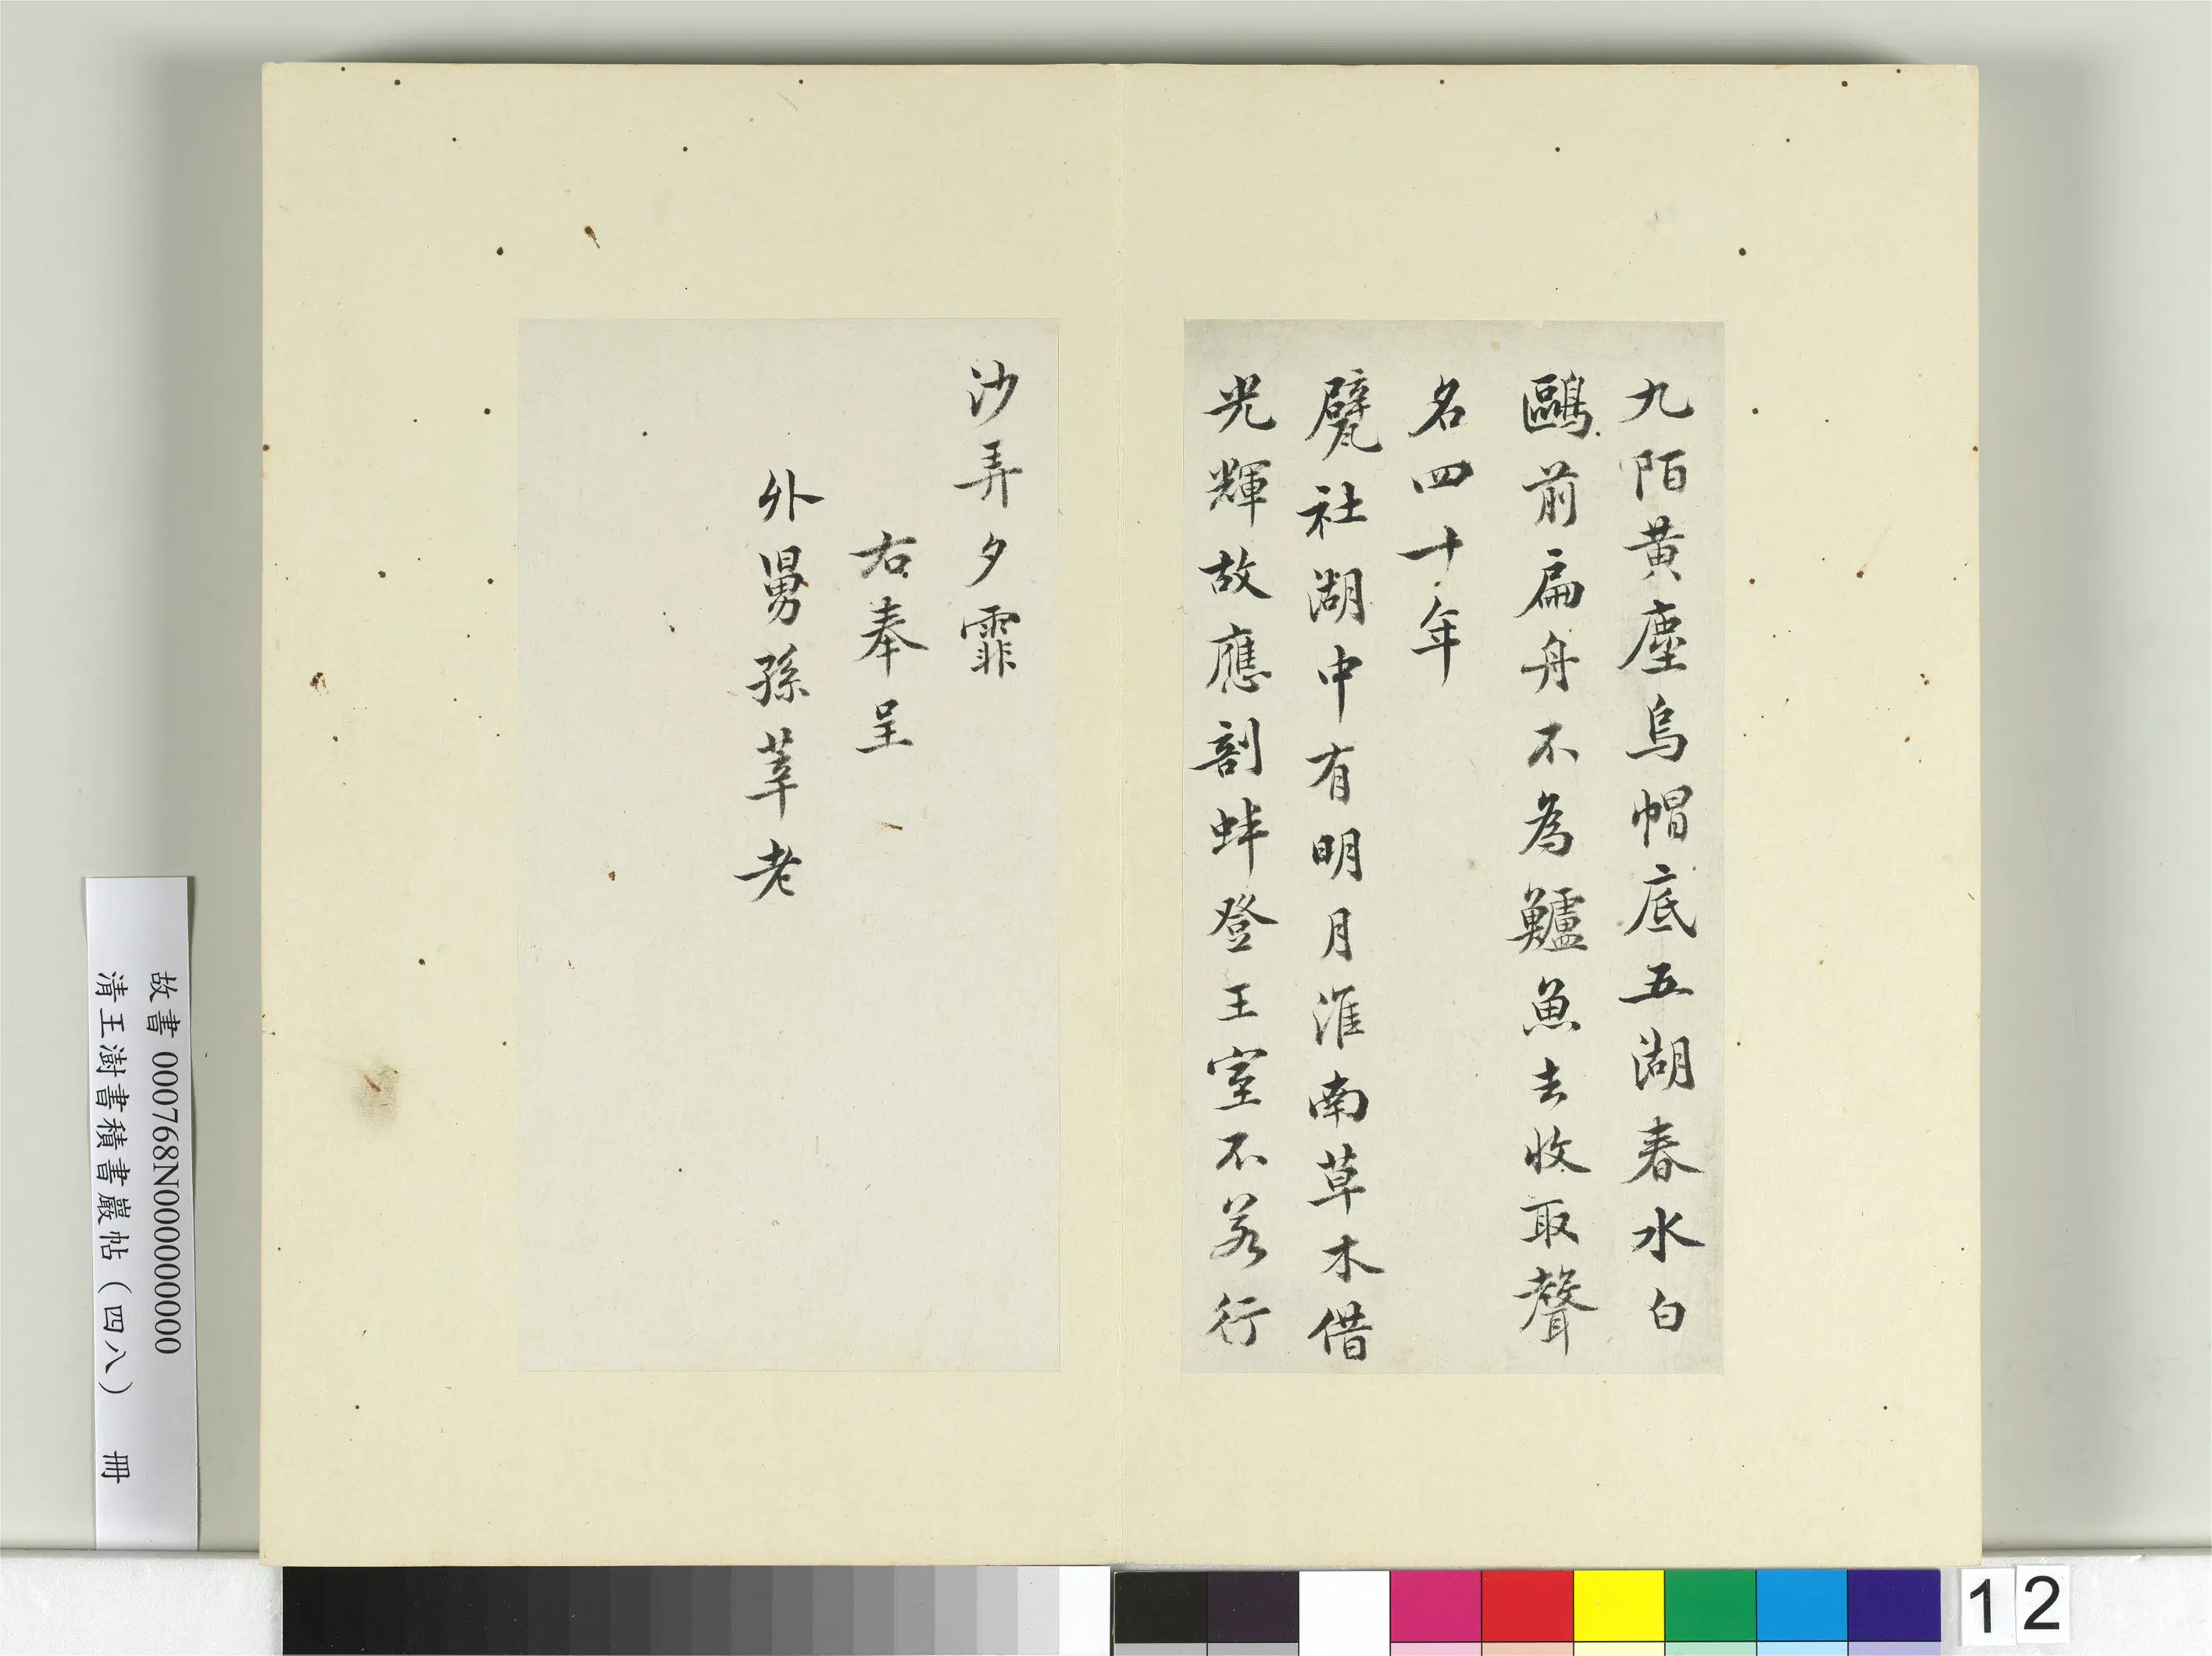 九陌黃塵烏帽底五湖春水白
鷗前扁舟不為鱸魚去收取聲
名四十年
甓社湖中有明月淮南草木借
光輝故應剖蚌登王室不若行
沙弄夕霏
右奉呈
外舅孫莘老
故書 000768N000000000
清王澍書積書巖帖（四八） 冊
12